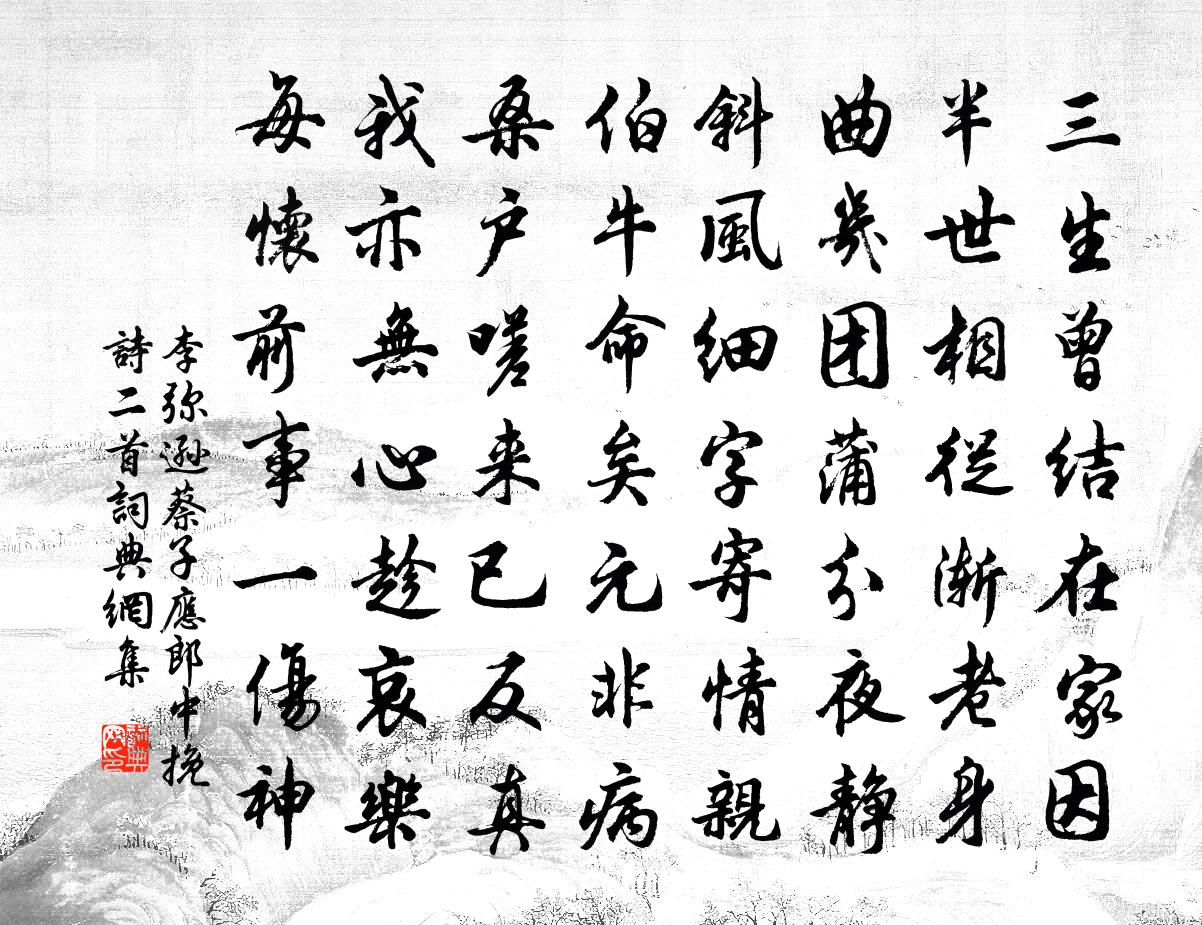 三生曾结在家因
半世相從渐老身
曲几团蒲分夜静
斜風细字寄情親
伯牛命矣元非病
桑户嗟来已反真
我亦無心趁哀樂
每懷前事一傷神
李弥遜蔡子應郎中挽
詩二首詞典網集